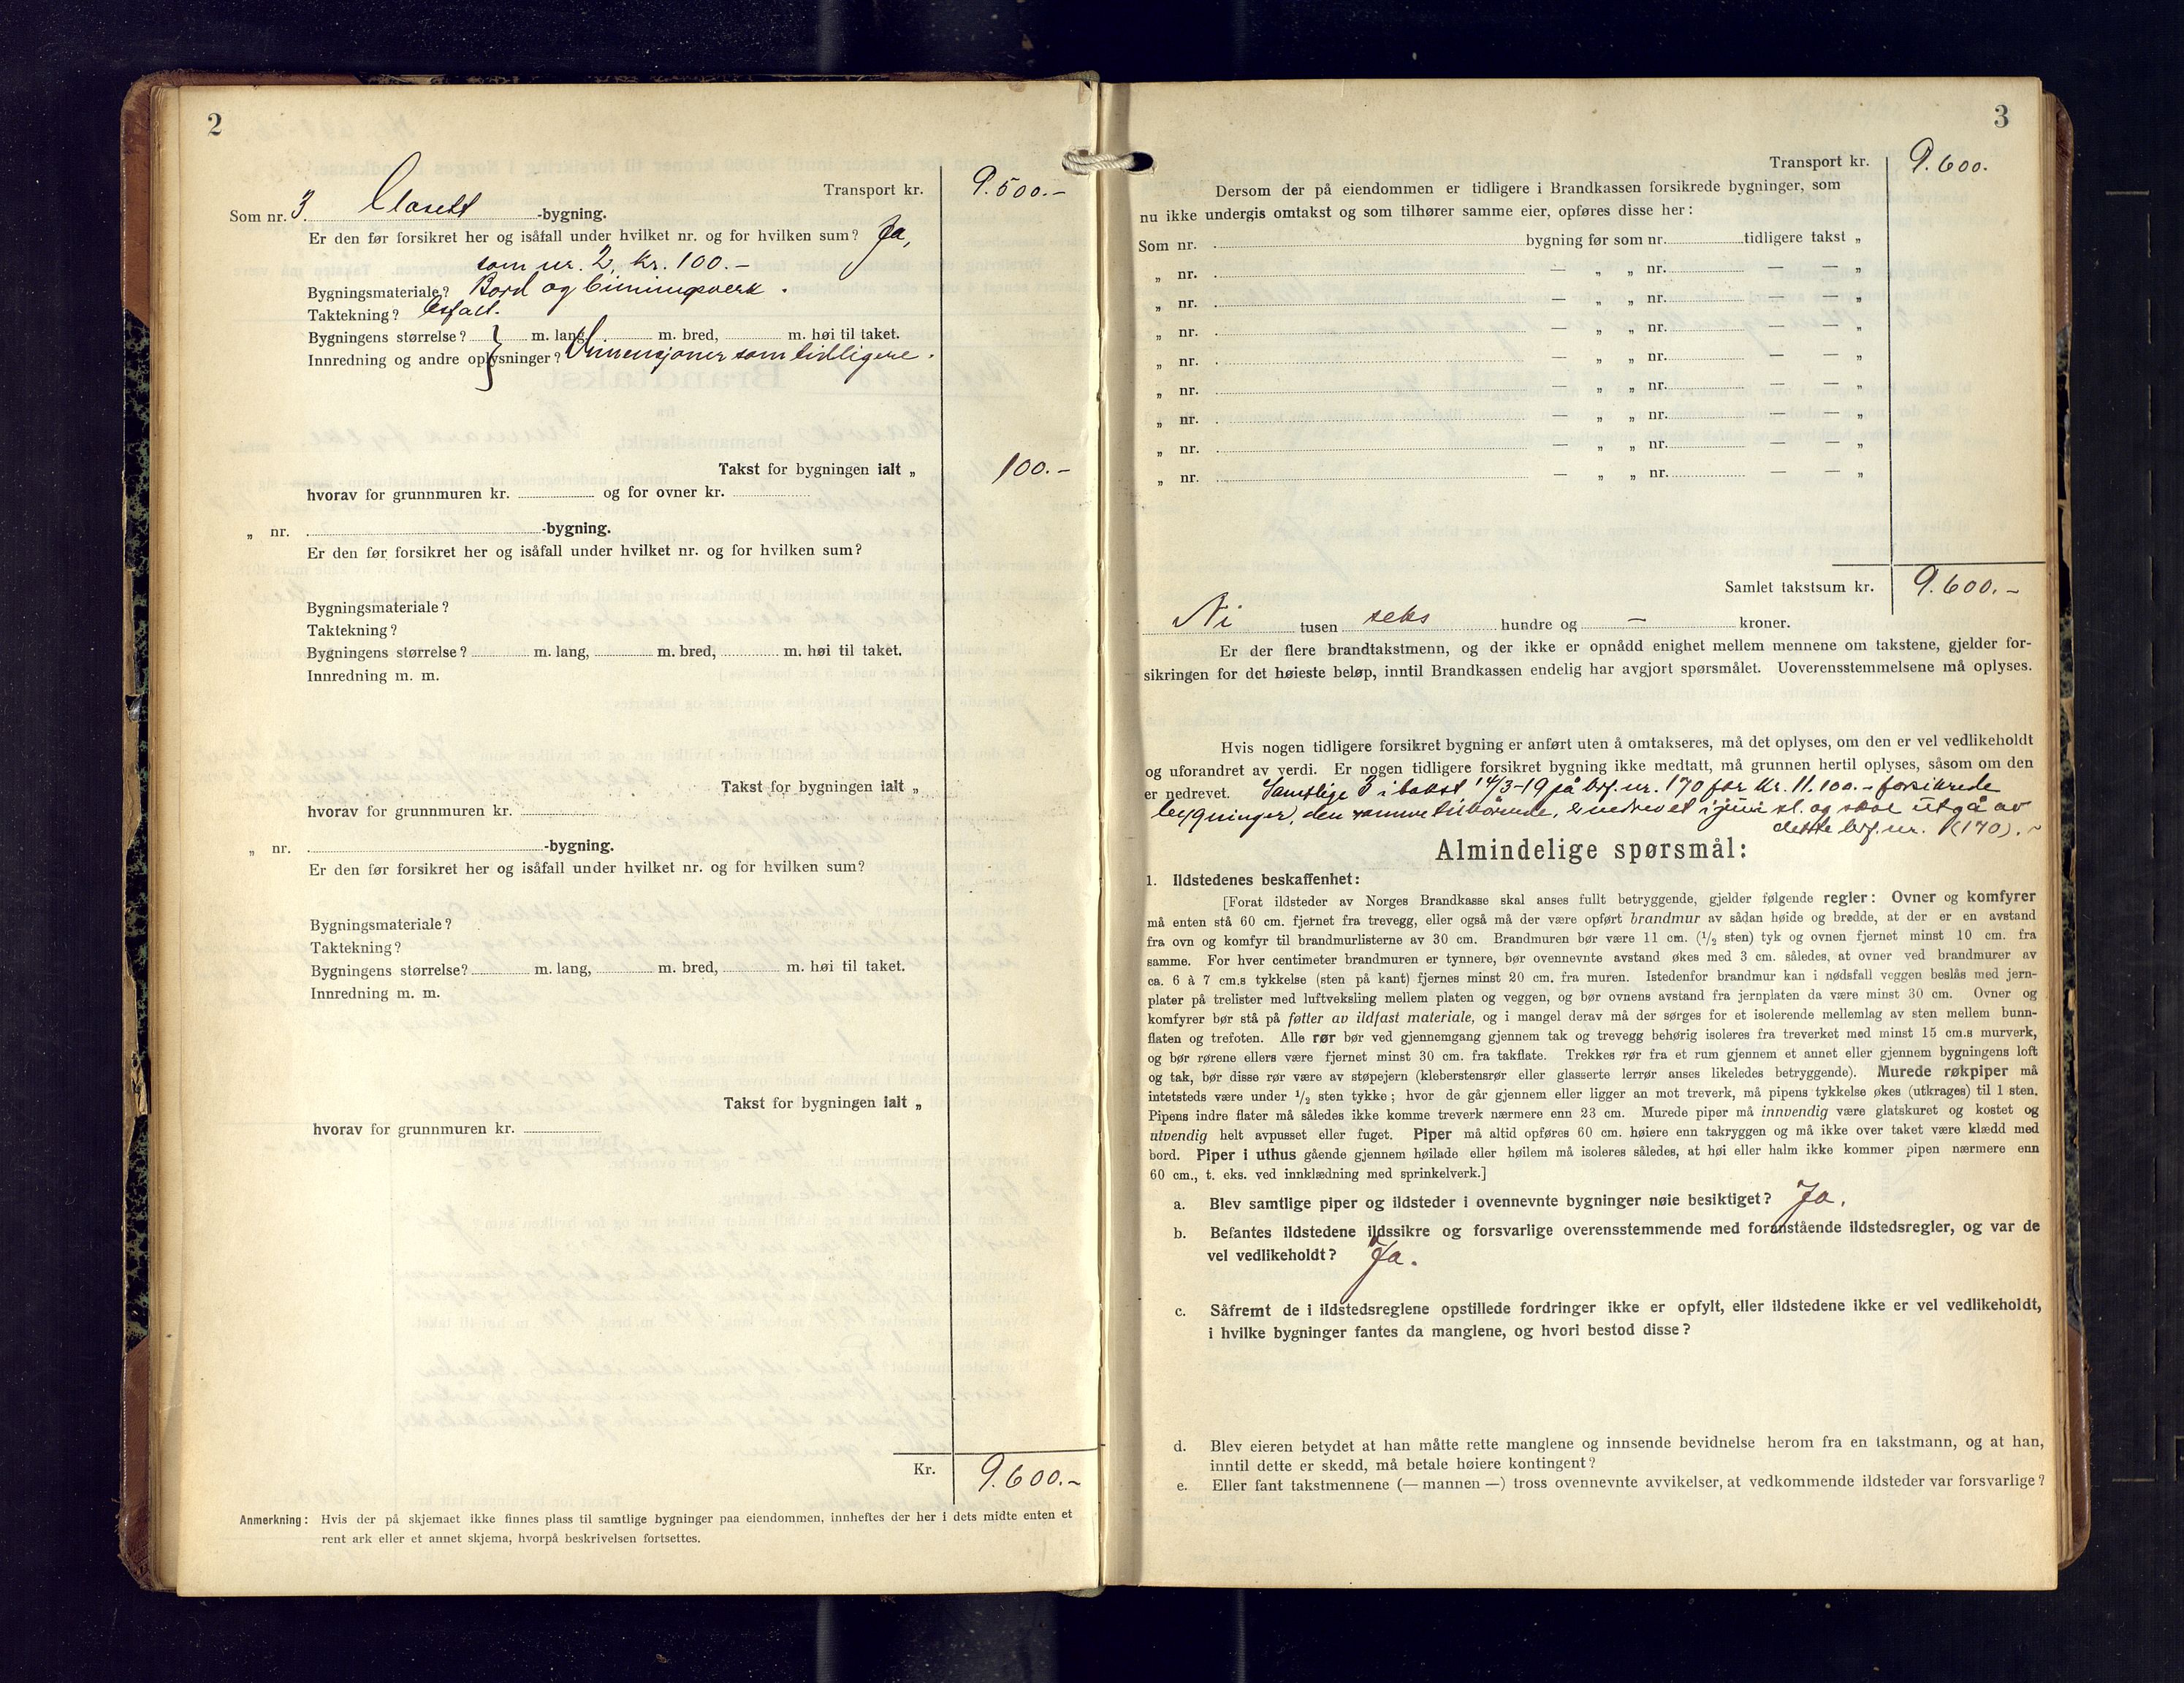 2
Transport kr. 9.500.-
Som nr. 3. Closett -bygning.
Er den før forsikret her og isåfall under hvilket nr. og for hvilken sum? Ja,
som nr. 2, kr. 100.-
Bygningsmateriale? Bord og binningsverk.
Taktekning? Asfalt.
Bygningens størrelse? m. lang, m. bred, m. høi til taket.
Innredning og andre oplysninger? Dimensjoner som tidligere.
Takst for bygningen ialt „ 100.-
hvorav for grunnmuren kr. og for ovner kr.
„ nr. -bygning.
Er den før forsikret her og isåfall under hvilket nr. og for hvilken sum?
Bygningsmateriale?
Taktekning?
Bygningens størrelse? m. lang, m. bred, m. høi til taket.
Innredning m. m.
Takst for bygningen ialt „
hvorav for grunnmuren kr.
„ nr. -bygning.
Er den før forsikret her og isåfall under hvilket nr. og for hvilken sum?
Bygningsmateriale?
Taktekning?
Bygningens størrelse? m. lang, m. bred, m. høi til taket.
Innredning m. m.
Takst for bygningen ialt „
hvorav for grunnmuren kr.
Kr. 9.600.-
Anmerkning: Hvis der på skjemaet ikke finnes plass til samtlige bygninger paa eiendommen, innheftes der her i dets midte enten et
rent ark eller et annet skjema, hvorpå beskrivelsen fortsettes.
3
Transport kr. 9.600.
Dersom der på eiendommen er tidligere i Brandkassen forsikrede bygninger, som
nu ikke undergis omtakst og som tilhører samme eier, opføres disse her:
Som nr. bygning før som nr. tidligere takst „
„ nr. — „ „ nr. — — „
„ nr. — „ „ nr. — — „
„ nr. — „ „ nr. — — „
„ nr. — „ „ nr. — — „
„ nr. — „ „ nr. — — „
„ nr. — „ „ nr. — — „
„ nr. — „ „ nr. — — „
„ nr. — „ „ nr. — — „
Samlet takstsum kr. 9.600.-
Ni tusen seks hundre og - kroner.
Er der flere brandtakstmenn, og der ikke er opnådd enighet mellem mennene om takstene, gjelder for-
sikringen for det høieste beløp, inntil Brandkassen endelig har avgjort spørsmålet. Uoverensstemmelsene må oplyses.
Hvis nogen tidligere forsikret bygning er anført uten å omtakseres, må det oplyses, om den er vel vedlikeholdt
og uforandret av verdi. Er nogen tidligere forsikret bygning ikke medtatt, må grunnen hertil oplyses, såsom om den
er nedrevet. Samtlige 3 i takst 14/3-19 på brf. nr. 170 for kr. 11.100.- forsikrede
bygninger, den samme tilhørende, er nedrevet i juni sl. og skal utgå av
dette brf. nr. (170).-
Almindelige spørsmål:
1. Ildstedenes beskaffenhet:
[Forat ildsteder av Norges Brandkasse skal anses fullt betryggende, gjelder følgende regler: Ovner og komfyrer
må enten stå 60 cm. fjernet fra trevegg, eller også må der være opført brandmur av sådan høide og bredde, at der er en avstand
fra ovn og komfyr til brandmurlisterne av 30 cm. Brandmuren bør være 11 cm. (1/2 sten) tyk og ovnen fjernet minst 10 cm. fra
samme. For hver centimeter brandmuren er tynnere, bør ovennevnte avstand økes med 3 cm. således, at ovner ved brandmurer av
ca. 6 à 7 cm.s tykkelse (sten på kant) fjernes minst 20 cm. fra muren. Istedenfor brandmur kan i nødsfall veggen beslås med jern-
plater på trelister med luftveksling mellem platen og veggen, og bør ovnens avstand fra jernplaten da være minst 30 cm. Ovner og
komfyrer bør stå på føtter av ildfast materiale, og i mangel derav må der sørges for et isolerende mellemlag av sten mellem bunn-
flaten og trefoten. Alle rør bør ved gjennemgang gjennem tak og trevegg behørig isoleres fra treverket med minst 15 cm.s murverk,
og bør rørene ellers være fjernet minst 30 cm. fra takflate. Trekkes rør fra et rum gjennem et annet eller gjennem bygningens loft
og tak, bør disse rør være av støpejern (kleberstensrør eller glasserte lerrør anses likeledes betryggende). Murede røkpiper må
intetsteds være under 1/2 sten tykke; hvor de går gjennem eller ligger an mot treverk, må pipens tykkelse økes (utkrages) til 1 sten.
Pipens indre flater må således ikke komme treverk nærmere enn 23 cm. Murede piper må innvendig være glatskuret og kostet og
utvendig helt avpusset eller fuget. Piper må altid opføres 60 cm. høiere enn takryggen og må ikke over taket være klædd med
bord. Piper i uthus gående gjennem høilade eller høilem må isoleres således, at høi eller halm ikke kommer pipen nærmere enn
60 cm., t. eks. ved innklædning med sprinkelverk.]
a. Blev samtlige piper og ildsteder i ovennevnte bygninger nøie besiktiget? Ja.
b. Befantes ildstedene ildssikre og forsvarlige overensstemmende med foranstående ildstedsregler, og var de
vel vedlikeholdt? Ja.
c. Såfremt de i ildstedsreglene opstillede fordringer ikke er opfylt, eller ildstedene ikke er vel vedlikeholdt,
i hvilke bygninger fantes da manglene, og hvori bestod disse?
d. Blev eieren betydet at han måtte rette manglene og innsende bevidnelse herom fra en takstmann, og at han,
inntil dette er skedd, må betale høiere kontingent?
e. Eller fant takstmennene (— mannen —) tross ovennevnte avvikelser, at vedkommende ildsteder var forsvarlige?